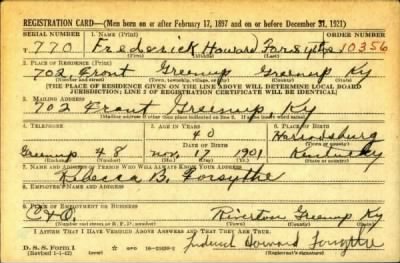 REGISTRATION CARD—(Men born on or after February 17, 1897 and on or before December 31, 1921)
SERIAL NUMBER 1. NAME (Print) ORDER NUMBER
T 770 Frederick Howard Forsythe 10356
2. PLACE OF RESIDENCE (Print)
702 Front Greenup Greenup Ky
(Number and street) (Town, township, village, or city) (County) (State)
[THE PLACE OF RESIDENCE GIVEN ON THE LINE ABOVE WILL DETERMINE LOCAL BOARD
JURISDICTION; LINE 2 OF REGISTRATION CERTIFICATE WILL BE IDENTICAL]
3. MAILING ADDRESS
702 Front Greenup Ky
[Mailing address if other than place indicated on line 2. If same insert word same]
4. TELEPHONE 5. AGE IN YEARS 6. PLACE OF BIRTH
40 Harrodsburg
DATE OF BIRTH (Town or county)
Greenup 48 Nov. 17 1901 Kentucky
(Exchange) (Number) (Mo.) (Day) (Yr.) (State or country)
7. NAME AND ADDRESS OF PERSON WHO WILL ALWAYS KNOW YOUR ADDRESS
Rebecca B. Forsythe
8. EMPLOYER'S NAME AND ADDRESS
C & O.
9. PLACE OF EMPLOYMENT OR BUSINESS
Riverton Greenup Ky
(Number and street or R. F. D. number) (Town) (County) (State)
I AFFIRM THAT I HAVE VERIFIED ABOVE ANSWERS AND THAT THEY ARE TRUE.
D. S. S. Form 1
(Revised 1-1-42) (over)
Frederick Howard Forsythe
(Registrant's signature)